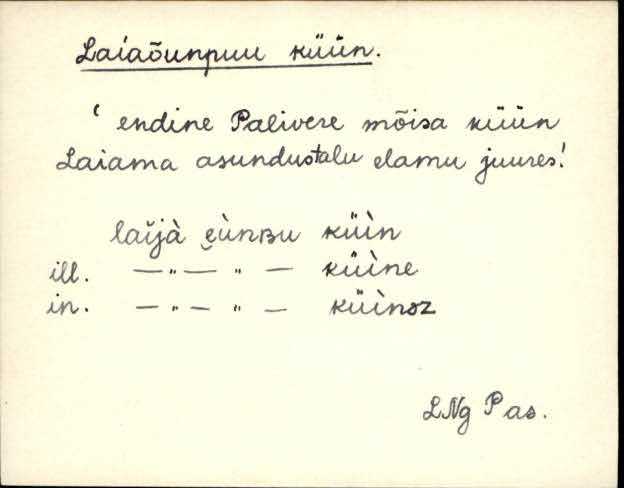 Laiaõunpuu küün.
‘ endine Palivere mõisa küün
Laiama asundustalu elamu juures!
laĭjà e̮ùnʙu küìn
ill. —〃— 〃 — küìne
in. —〃— 〃 — küìnəz
LNg Pas.